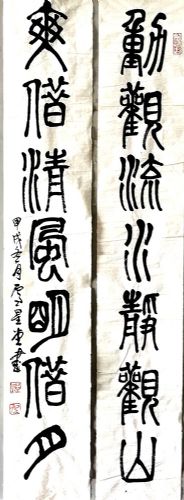 動觀流水靜觀山
爽借清風明借月
甲戌冬月星堂書